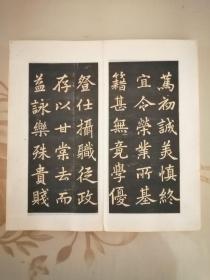 篤初誠美慎終
宜令榮業所基
籍甚無竟學優
登仕攝職從政
存以甘棠去而
益詠樂殊貴賤